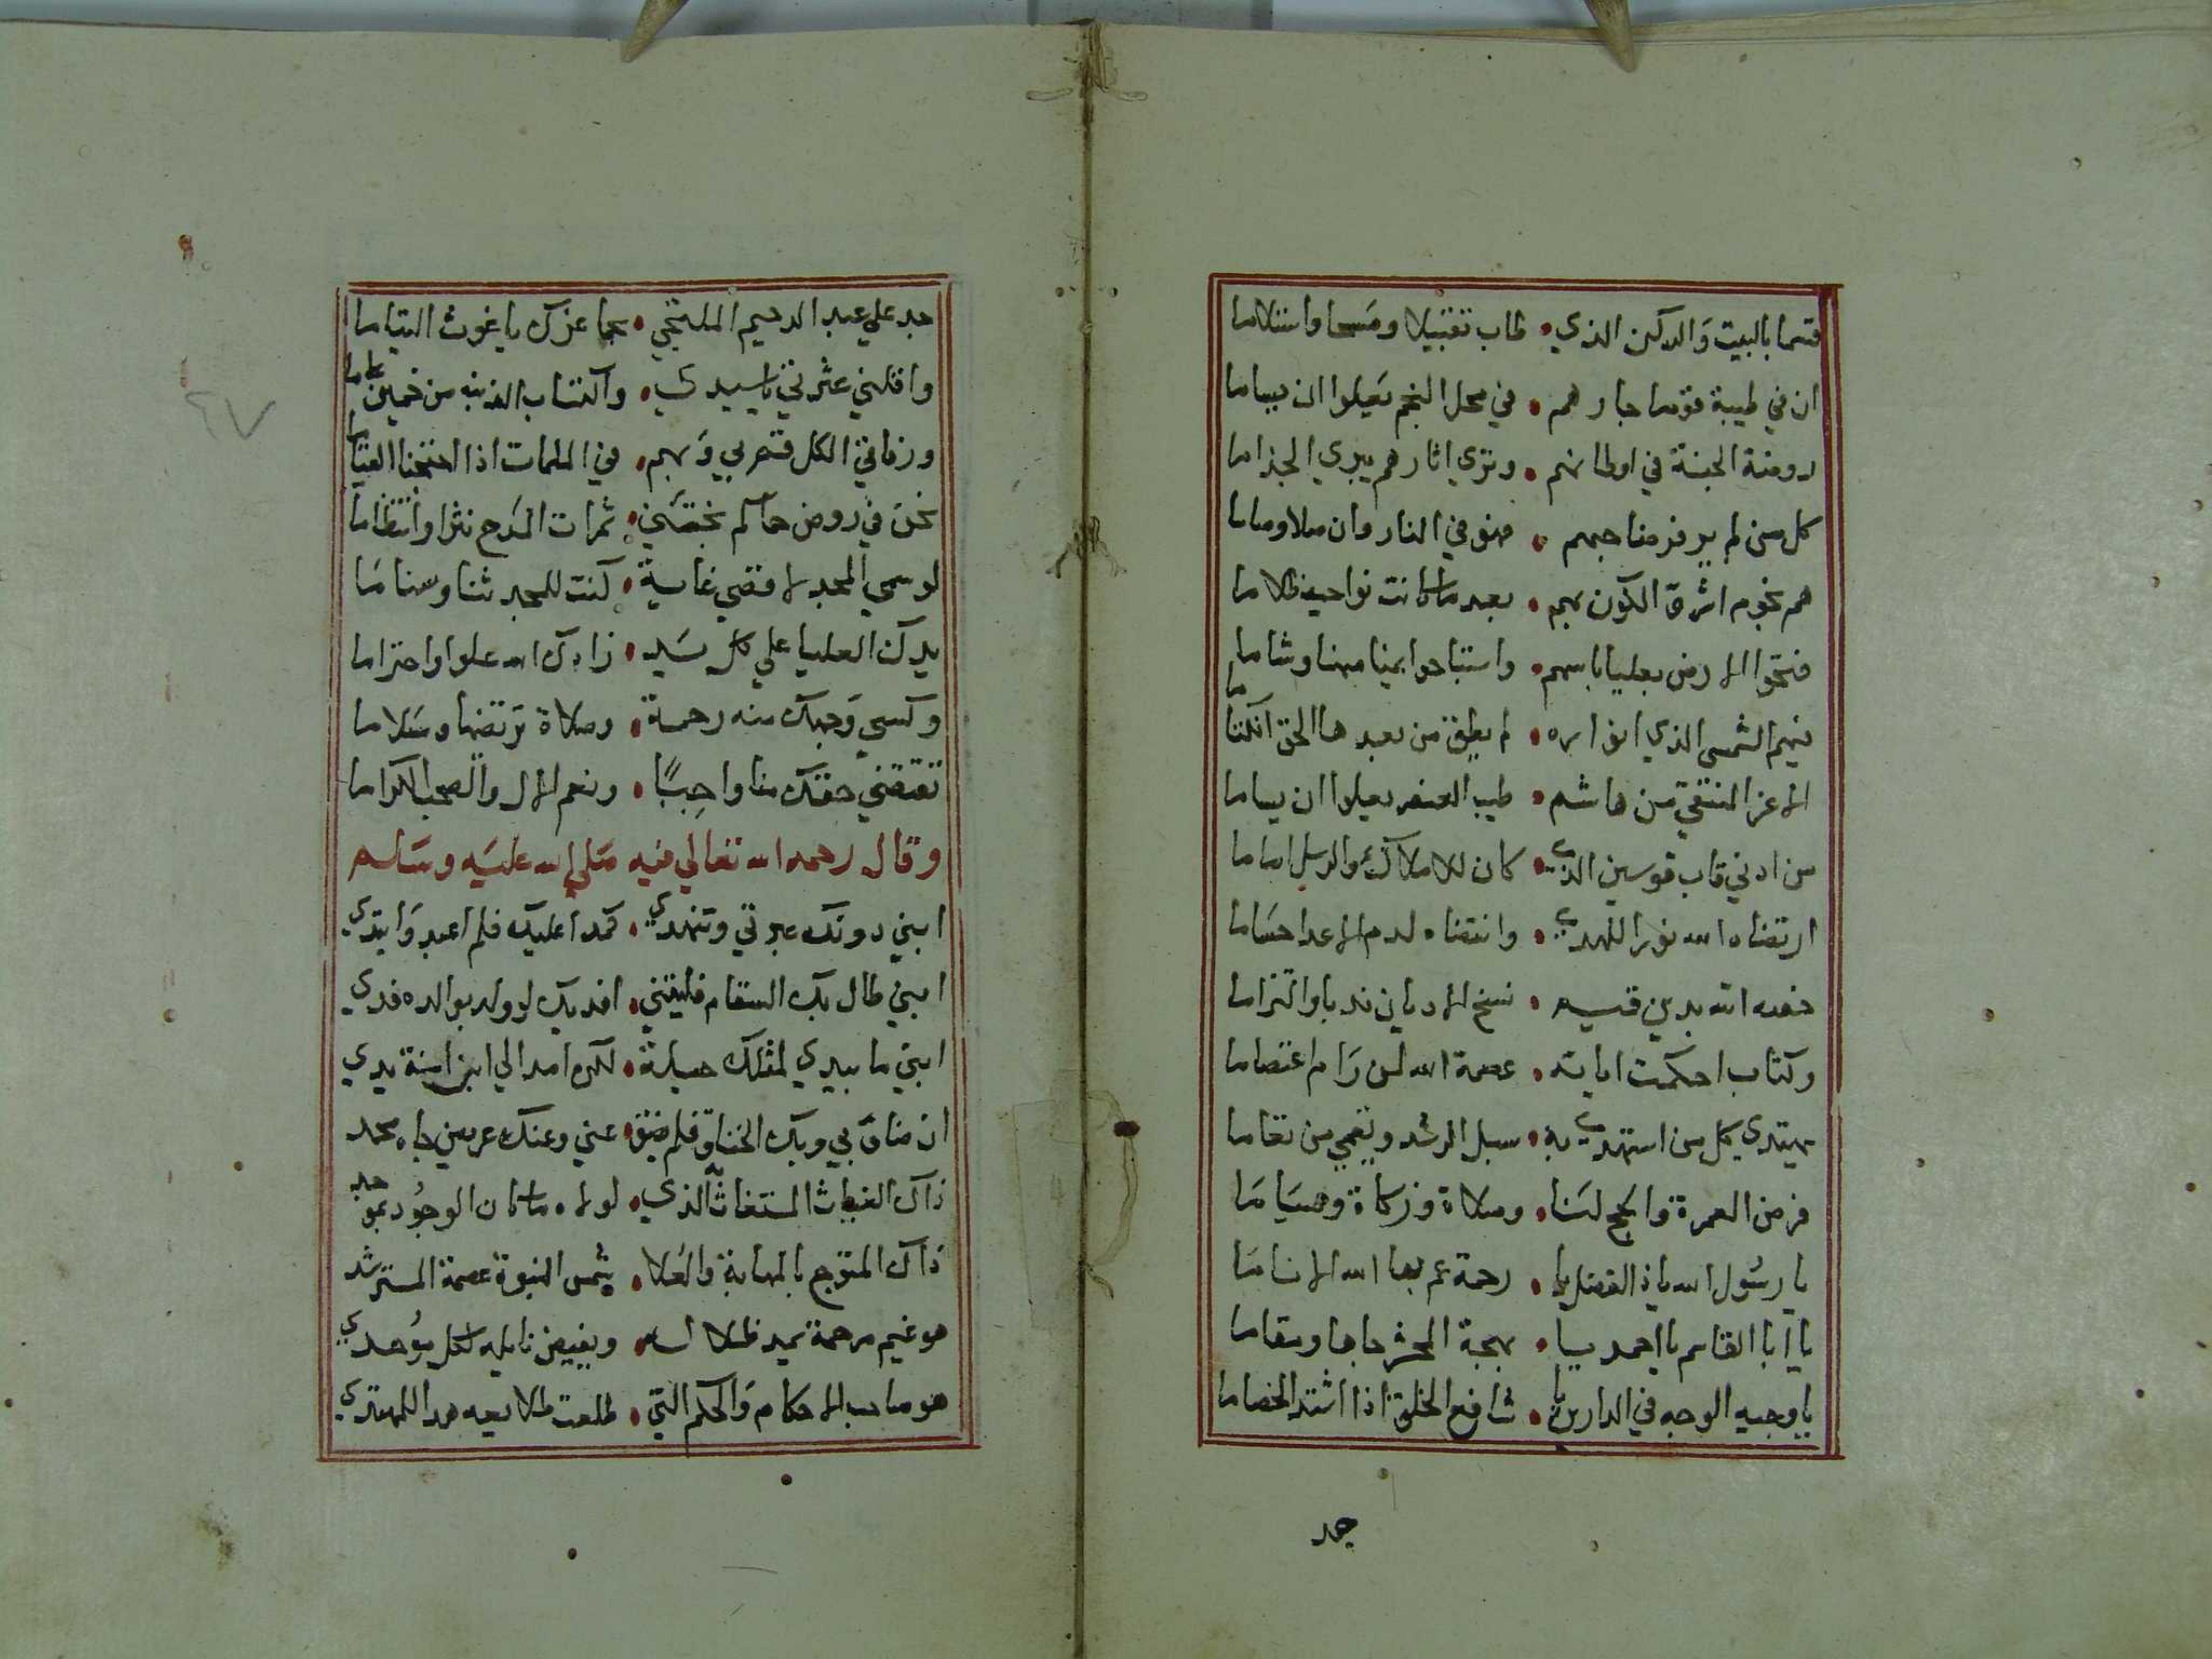 قسما بالبيت والركن الذي • طاب تقبيلا ومسحا واستلاما
ان في طيبة قوما جارهم • في محل النجم يعلوا ان يساما
روضة الجنة في اوطانهم • وتري اثارهم يبري الجذاما
كل من لم ير فرضا حبهم • فهو في النار وان صلا وصاما
هم نجوم اشرق الكون بهم • بعد ما كانت نواحيه ظلاما
فتحوا الارض بعليا باسهم • واستباحوا يمنا منها وشاما
فيهم الشمس الذي انواره • لم يطق من بعدها الحق انكتاما
الاعز المنتقي من هاشم • طيب العنصر يعلوا ان يساما
من ادني قاب قوسين الذي • كان للاملاك والرسل اماما
ارتضاه الله نورا للهدي • وانتضاه لدم الاعدا حساما
خصه الله بدين قيم • نسخ الاديان ندبا والتزاما
وكتاب احكمت اياته • عصمة الله لمن رام اعتصاما
يهتدي كل من استهدي به • سبل الرشد ويعمي من تعاما
فرض العمرة والحج لنا • وصلاة وزكاة وصياما
يا رسول الله ياذا الفضل يا • رحمة عم بها الله الاناما
يا ابا القاسم يا احمد يا • بهجة المحشر جاها ومقاما
يا وجيه الوجه في الدارين يا • شافع الخلق اذا اشتد الخصاما
جد
جد علي عبد الرحيم الملتجي • بحما عزك يا غوث اليتاما
واقلني عثرتي يا سيدي • واكتساب الذنب من خمسين عاما
ورفاقي الكل قم بي وبهم • في الملمات اذا احتجنا القياما
نحن في روض حماكم نجتني • ثمرات المدح نثرا وانتظاما
لو سمي المجد لاقصي غاية • كنت للمجد ثنا وسناما
يدك العليا علي كل يد • زادك الله علوا واحتراما
وكسي وجهك منه رحمة • وصلاة ترتضيها وسلاما
تقتضي حقك منا واجبا • وتعم الال والصحب الكراما
وقال رحمه الله تعالي فيه صلي الله عليه وسلم
ابني دونك عبرتي وتنهدي • كمدا عليك فلم اعيد وابتدي
ابني طال بك السقام فليتني • افديك لو ولد بوالده فدي
ابني ما بيدي لمثلك حيلة • لكن امد الي ابن امنة يدي
ان ضاق بي وبك الخناق فلم يضق • عني وعنك عريض جاه محمد
ذاك الغياث المستغاث به الذي • لولاه ما كان الوجود بموجد
ذاك المتوج بالمهابة والعلا • شمس النبوة عصمة المسترشد
هو غيم مرحمة يمد ظلاله • ويفيض نايله لكل موحدي
هو صاحب الاحكام والحكم التي • طلعت طلايعه هدا للمهتدي
٦٧